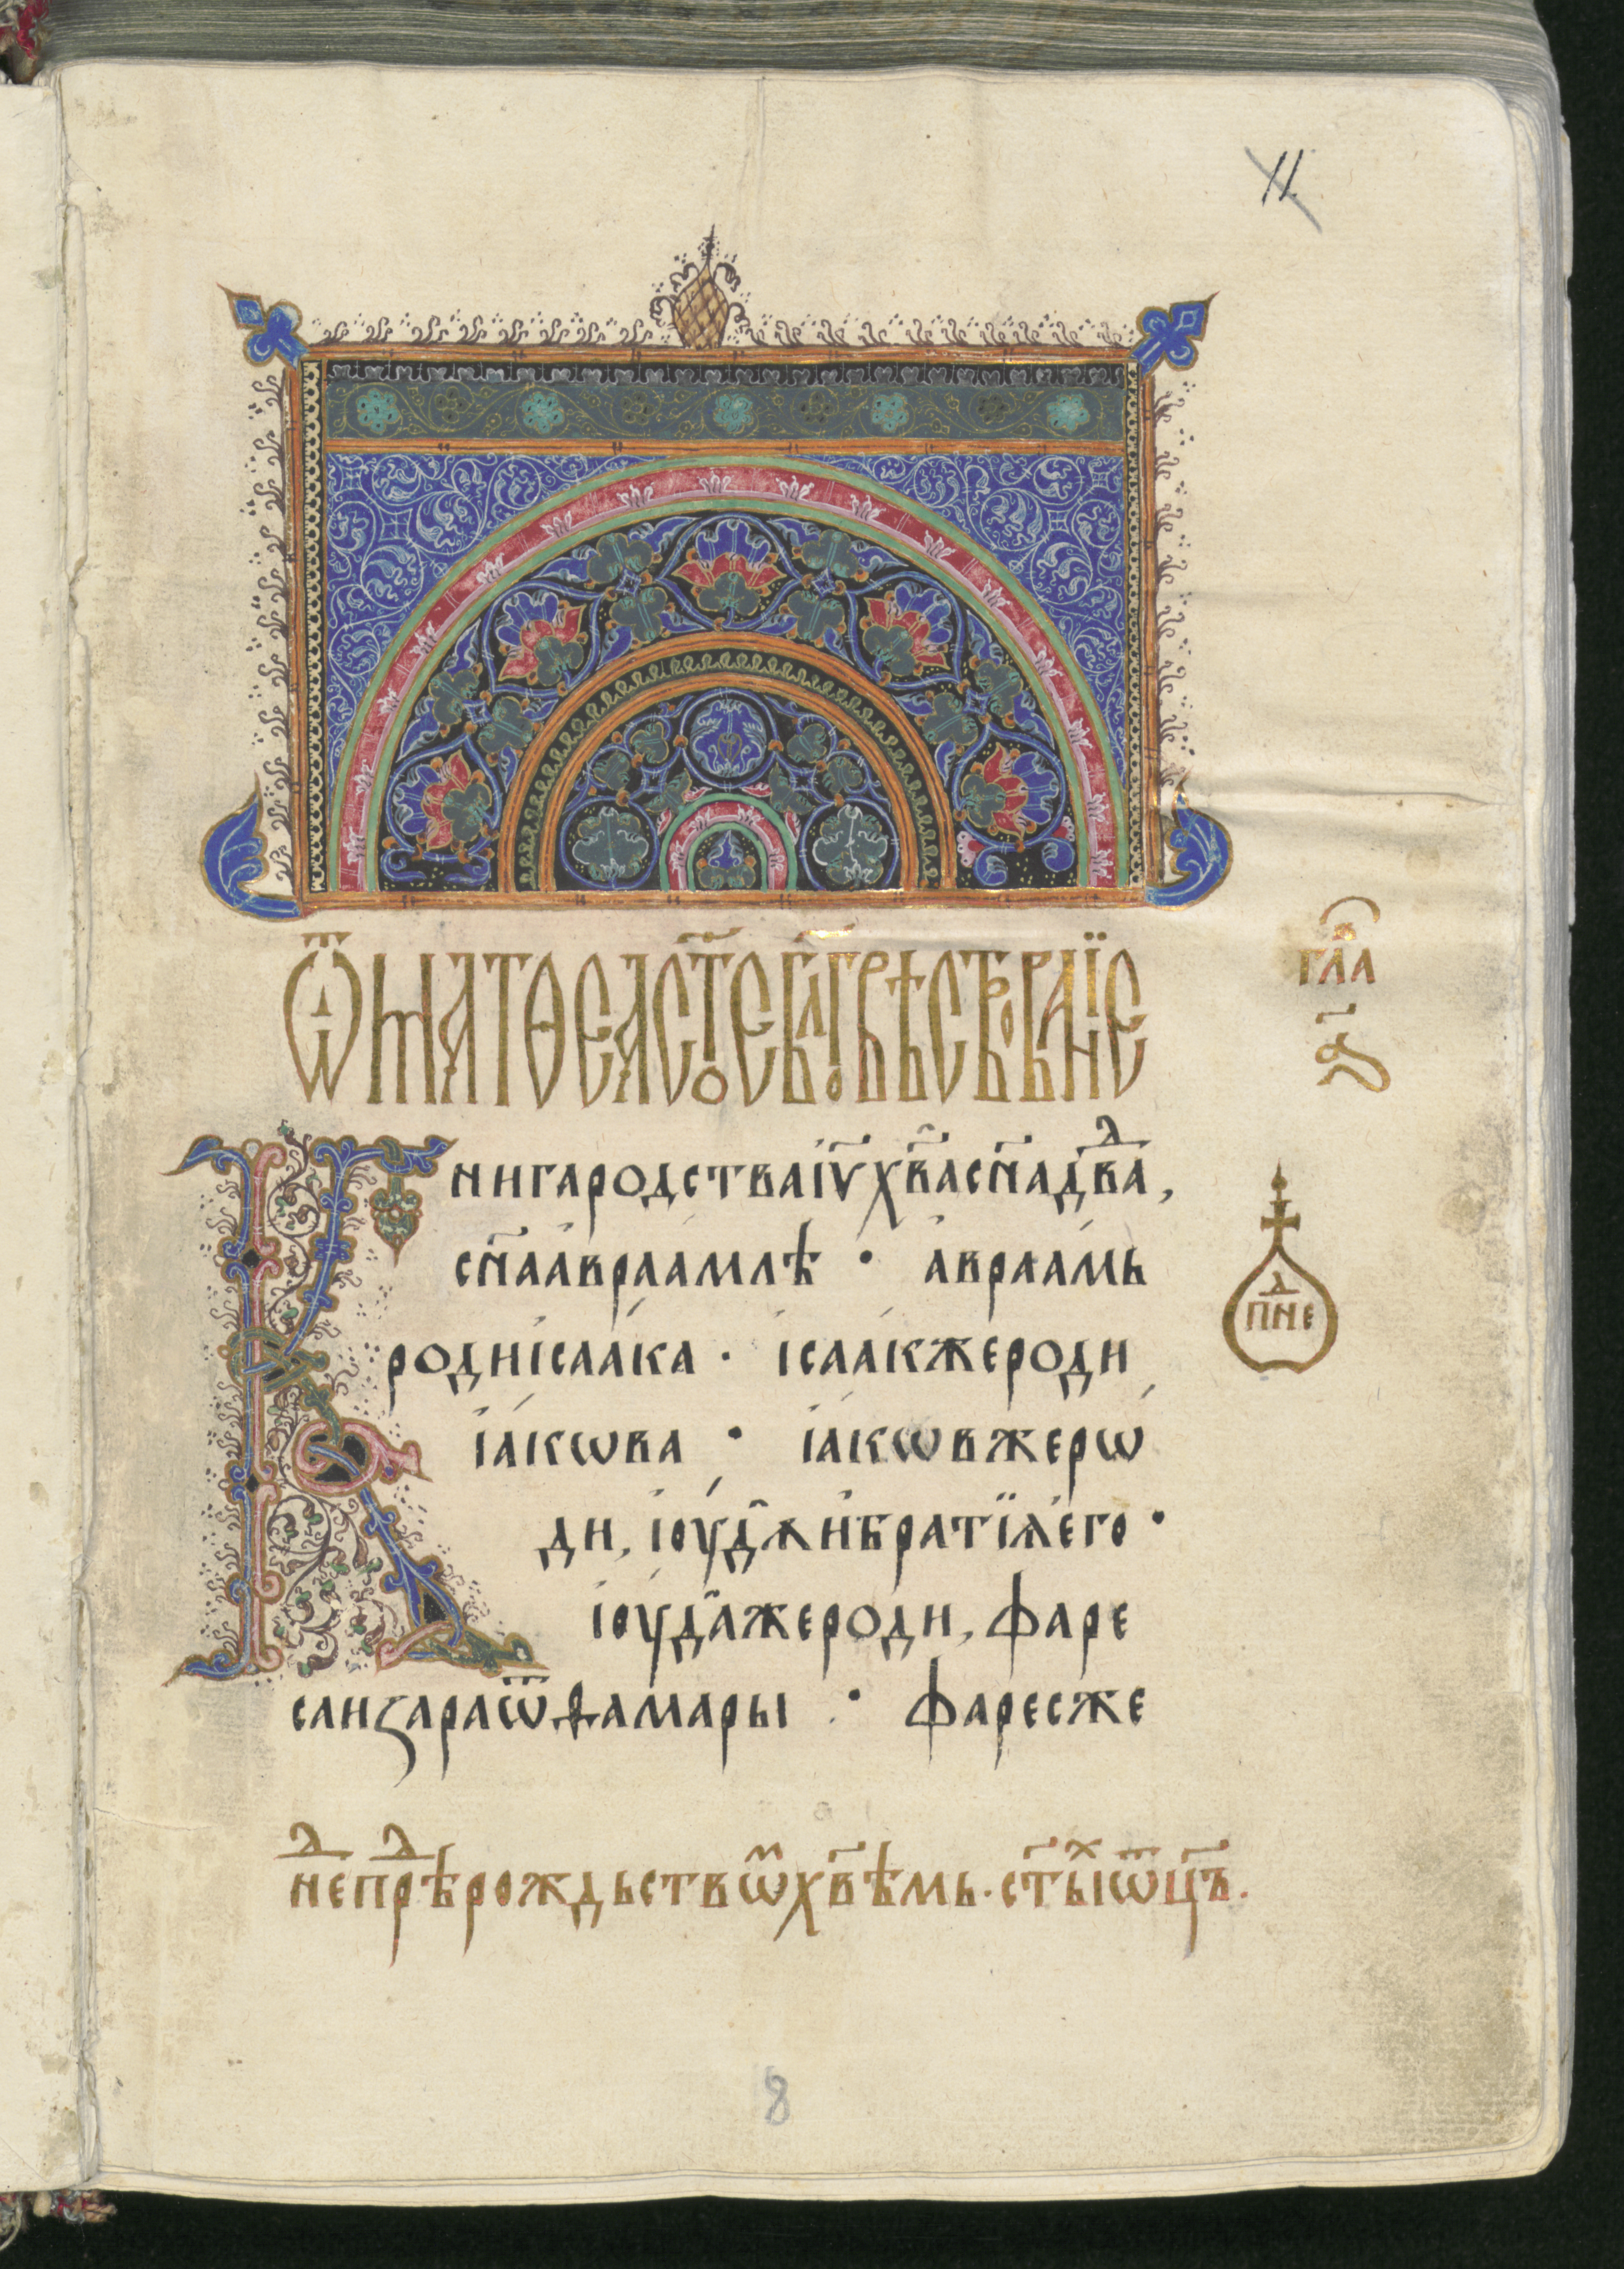 11
Ѿ МАТѲЕА СТ҃ОЕ БЛ҃ГОВѢСТВОВАНЇЕ
ГЛАⷡ҇
а҃
Книга родства і҆ѵ҃ х҃ва сн҃а дв҃дⷣва,
сн҃а а҆враа́млѣ · а҆враа́мь
роди і҆саа́ка · і҆саа́кже роди
і҆а́кѡва · і҆а́кѡв же рѡ́
ди, і҆оу́дꙋ и҆ братїѧ е҆го ·
і҆оу́да же роди, фаре
са и ꙁара ѿ ѳама́ры · фарес же
неⷣ
пне
неⷣ преⷣ рождьствѡⷨ х҃вѣмь · ст҃ыⷯ ѿц҃ъ.
8